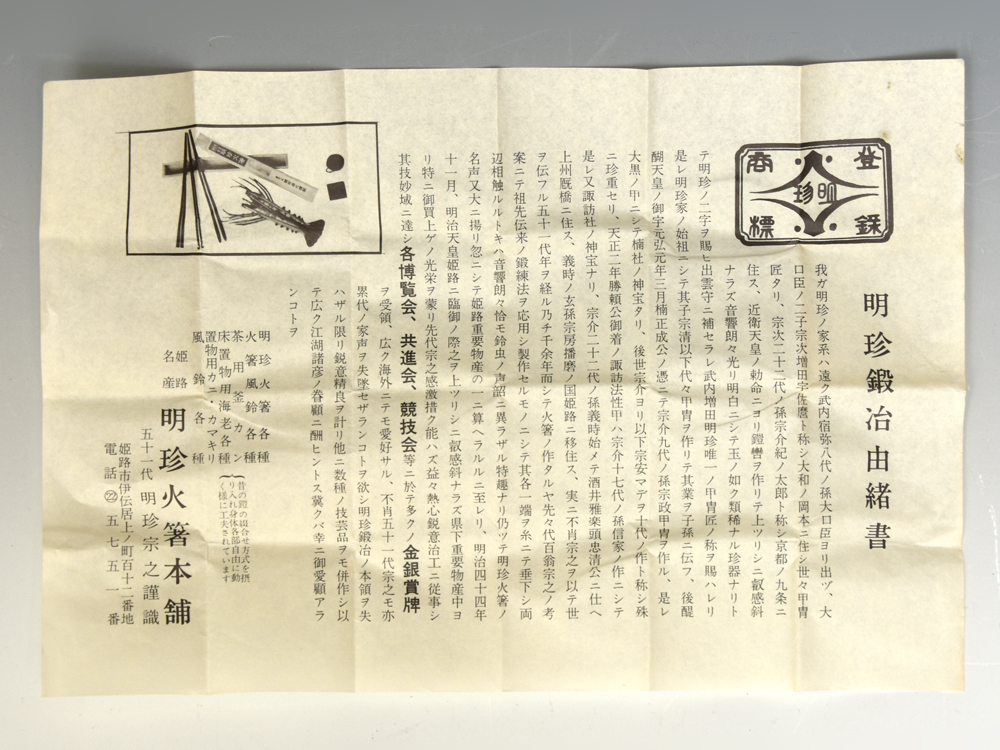 明珍鍛冶由緒書
登録
明珍
商標
我ガ明珍ノ家系ハ遠ク武内宿弥八代ノ孫大口臣ヨリ出ヅ、大
口臣ノ二子宗次増田宇佐麿ト称シ大和ノ岡本ニ住シ世々甲冑
匠タリ、宗次二十二代ノ孫宗介紀ノ太郎ト称シ京都ノ九条ニ
住ス、近衛天皇ノ勅命ニヨリ鎧轡ヲ作リテ上ツリシニ叡感斜
ナラズ音響朗々光リ明白ニシテ玉ノ如ク類稀ナル珍器ナリト
テ明珍ノ二字ヲ賜ヒ出雲守ニ補セラレ武内増田明珍唯一ノ甲冑匠ノ称ヲ賜ハレリ
是レ明珍家ノ始祖ニシテ其子宗清以下代々甲冑ヲ作リテ其業ヲ子孫ニ伝フ、後醍
醐天皇ノ御宇元弘元年三月楠正成公ノ憑ニテ宗介九代ノ孫宗政甲冑ヲ作ル、是レ
大黒ノ甲ニシテ楠社ノ神宝タリ、後世宗介ヨリ以下宗安マデヲ十代ノ作ト称シ殊
ニ珍重セリ、天正二年勝頼公御着ノ諏訪法性甲ハ宗介十七代ノ孫信家ノ作ニシテ
是レ又諏訪社ノ神宝ナリ、宗介二十二代ノ孫義時始メテ酒井雅楽頭忠清公ニ仕ヘ
上州厩橋ニ住ス、義時ノ玄孫宗房播磨ノ国姫路ニ移住ス、実ニ不肖宗之ヲ以テ世
ヲ伝フル五十一代年ヲ経ル乃チ千余年而シテ火箸ノ作タルヤ先々代百翁宗之ノ考
案ニテ祖先伝来ノ鍛練法ヲ応用シ製作セルモノニシテ其各一端ヲ糸ニテ垂下シ両
辺相触ルルトキハ音響朗々恰モ鈴虫ノ声韶ニ異ラザル特趣ナリ仍ツテ明珍火箸ノ
名声又大ニ揚リ忽ニシテ姫路重要物産の一ニ算ヘラルルニ至レリ、明治四十四年
十一月、明治天皇姫路ニ臨御ノ際之ヲ上ツリシニ叡感斜ナラズ県下重要物産中ヨ
リ特ニ御買上ゲノ光栄ヲ蒙リ先代宗之感激措ク能ハズ益々熱心鋭意治工ニ従事シ
其技妙域ニ達シ各博覧会、共進会、競技会等ニ於テ多クノ金銀賞牌
ヲ受領、広ク海外ニテモ愛好サル、不肖五十一代宗之モ亦
累代ノ家声ヲ失墜セザランコトヲ欲シ明珍鍛冶ノ本領ヲ失
ハザル限リ鋭意精良ヲ計リ他ニ数種ノ技芸品ヲモ併作シ以
テ広ク江湖諸彦ノ眷顧ニ酬ヒントス冀クバ幸ニ御愛顧アラ
ンコトヲ
明珍火箸各種
火箸風鈴各種
茶用釜カン
床置物用海老各種
置物用カニ・カマキリ
風鈴各種
昔の鎧の綴合せ方式を摂
り入れ身体各部自由に動
く様に工夫されています
姫路名産
明珍火箸本舗
五十一代明珍宗之謹識
姫路市伊伝居上ノ町百十二番地
電話㉒五七五一番